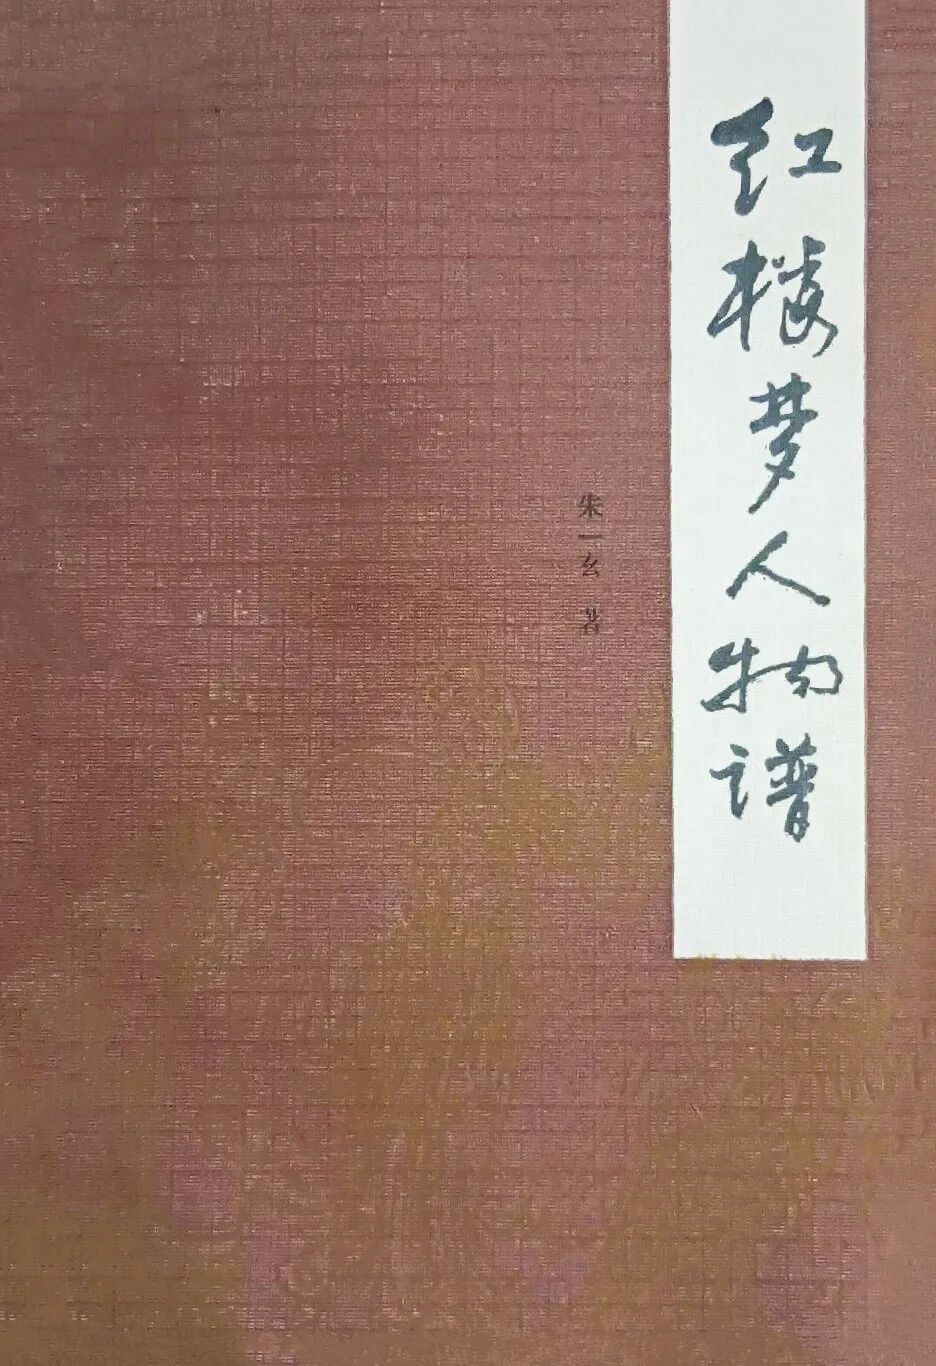 红楼梦人物谱
朱一玄 著